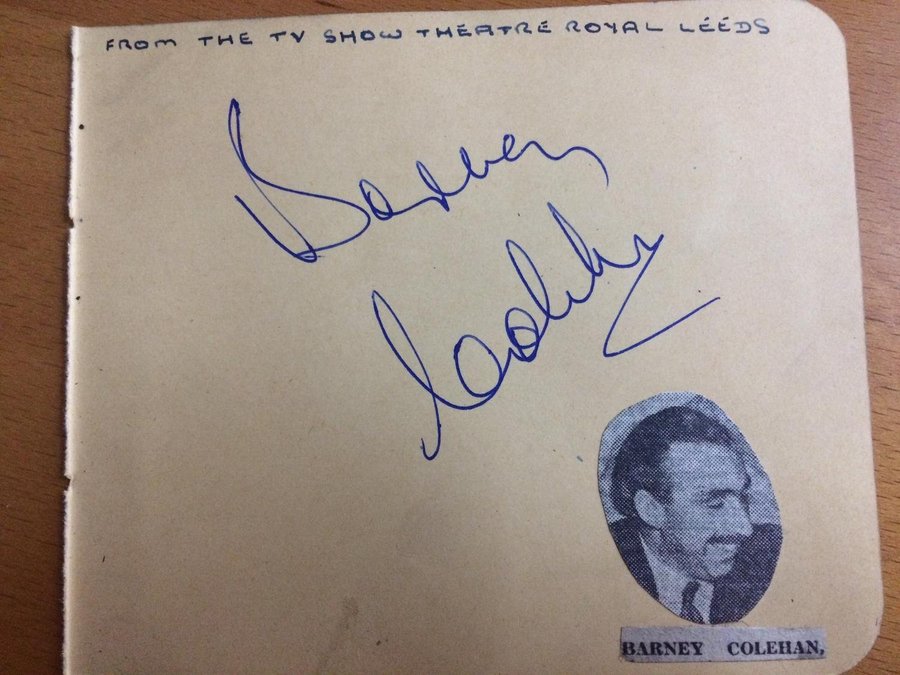 FROM THE TV SHOW THÉATRÉ ROYAL LÉÉDS
Barney
Colehan
BARNEY COLEHAN,